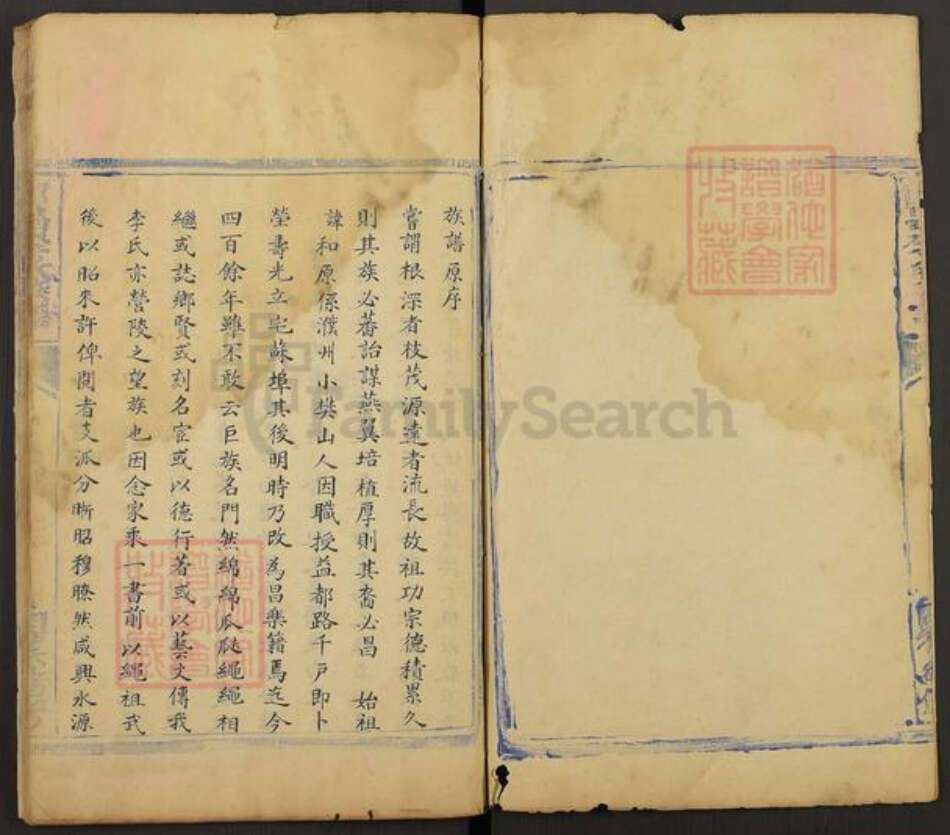 族譜原序
嘗謂根深者枝茂源遠者流長故祖功宗德積累久
則其族必蕃詒謀燕翼培植厚則其裔必昌 始祖
諱和原係濮州小樊山人因職授益都路千戶即卜
塋壽光立宅蘇埠其後明時乃改為昌樂籍焉迄今
四百餘年雖不敢云巨族名門然綿綿瓜瓞繩繩相
繼或誌鄉賢或刻名宦或以德行著或以藝文傳我
李氏亦營陵之望族也因念家乘一書前以繩祖武
後以昭來許俾閱者支派分晰昭穆瞭然咸興水源
FamilySearch